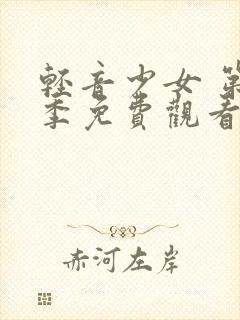 輕音少女 第
季免費觀看
赤河左岸